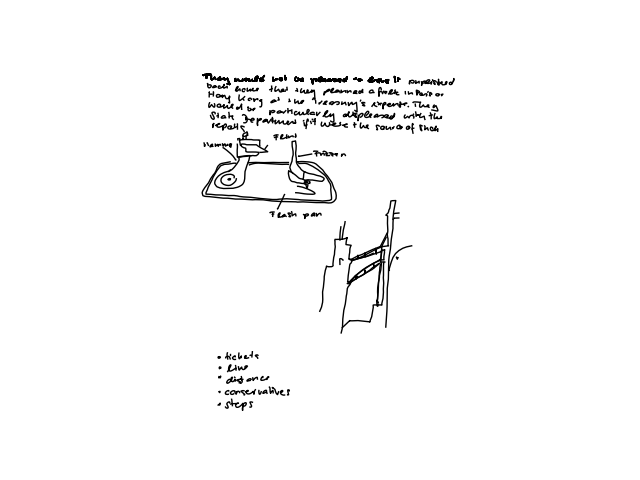 They would not be pleased to have it published
back home that they planned a frolic in Paris or
Hong Kong at the Treasury's expense. They
would be particularly displeased with the
State Department if it were the source of such
reports
Hammer
Flint
Frizzen
Flash pan
• tickets
• line
• distance
• conservatives
• steps